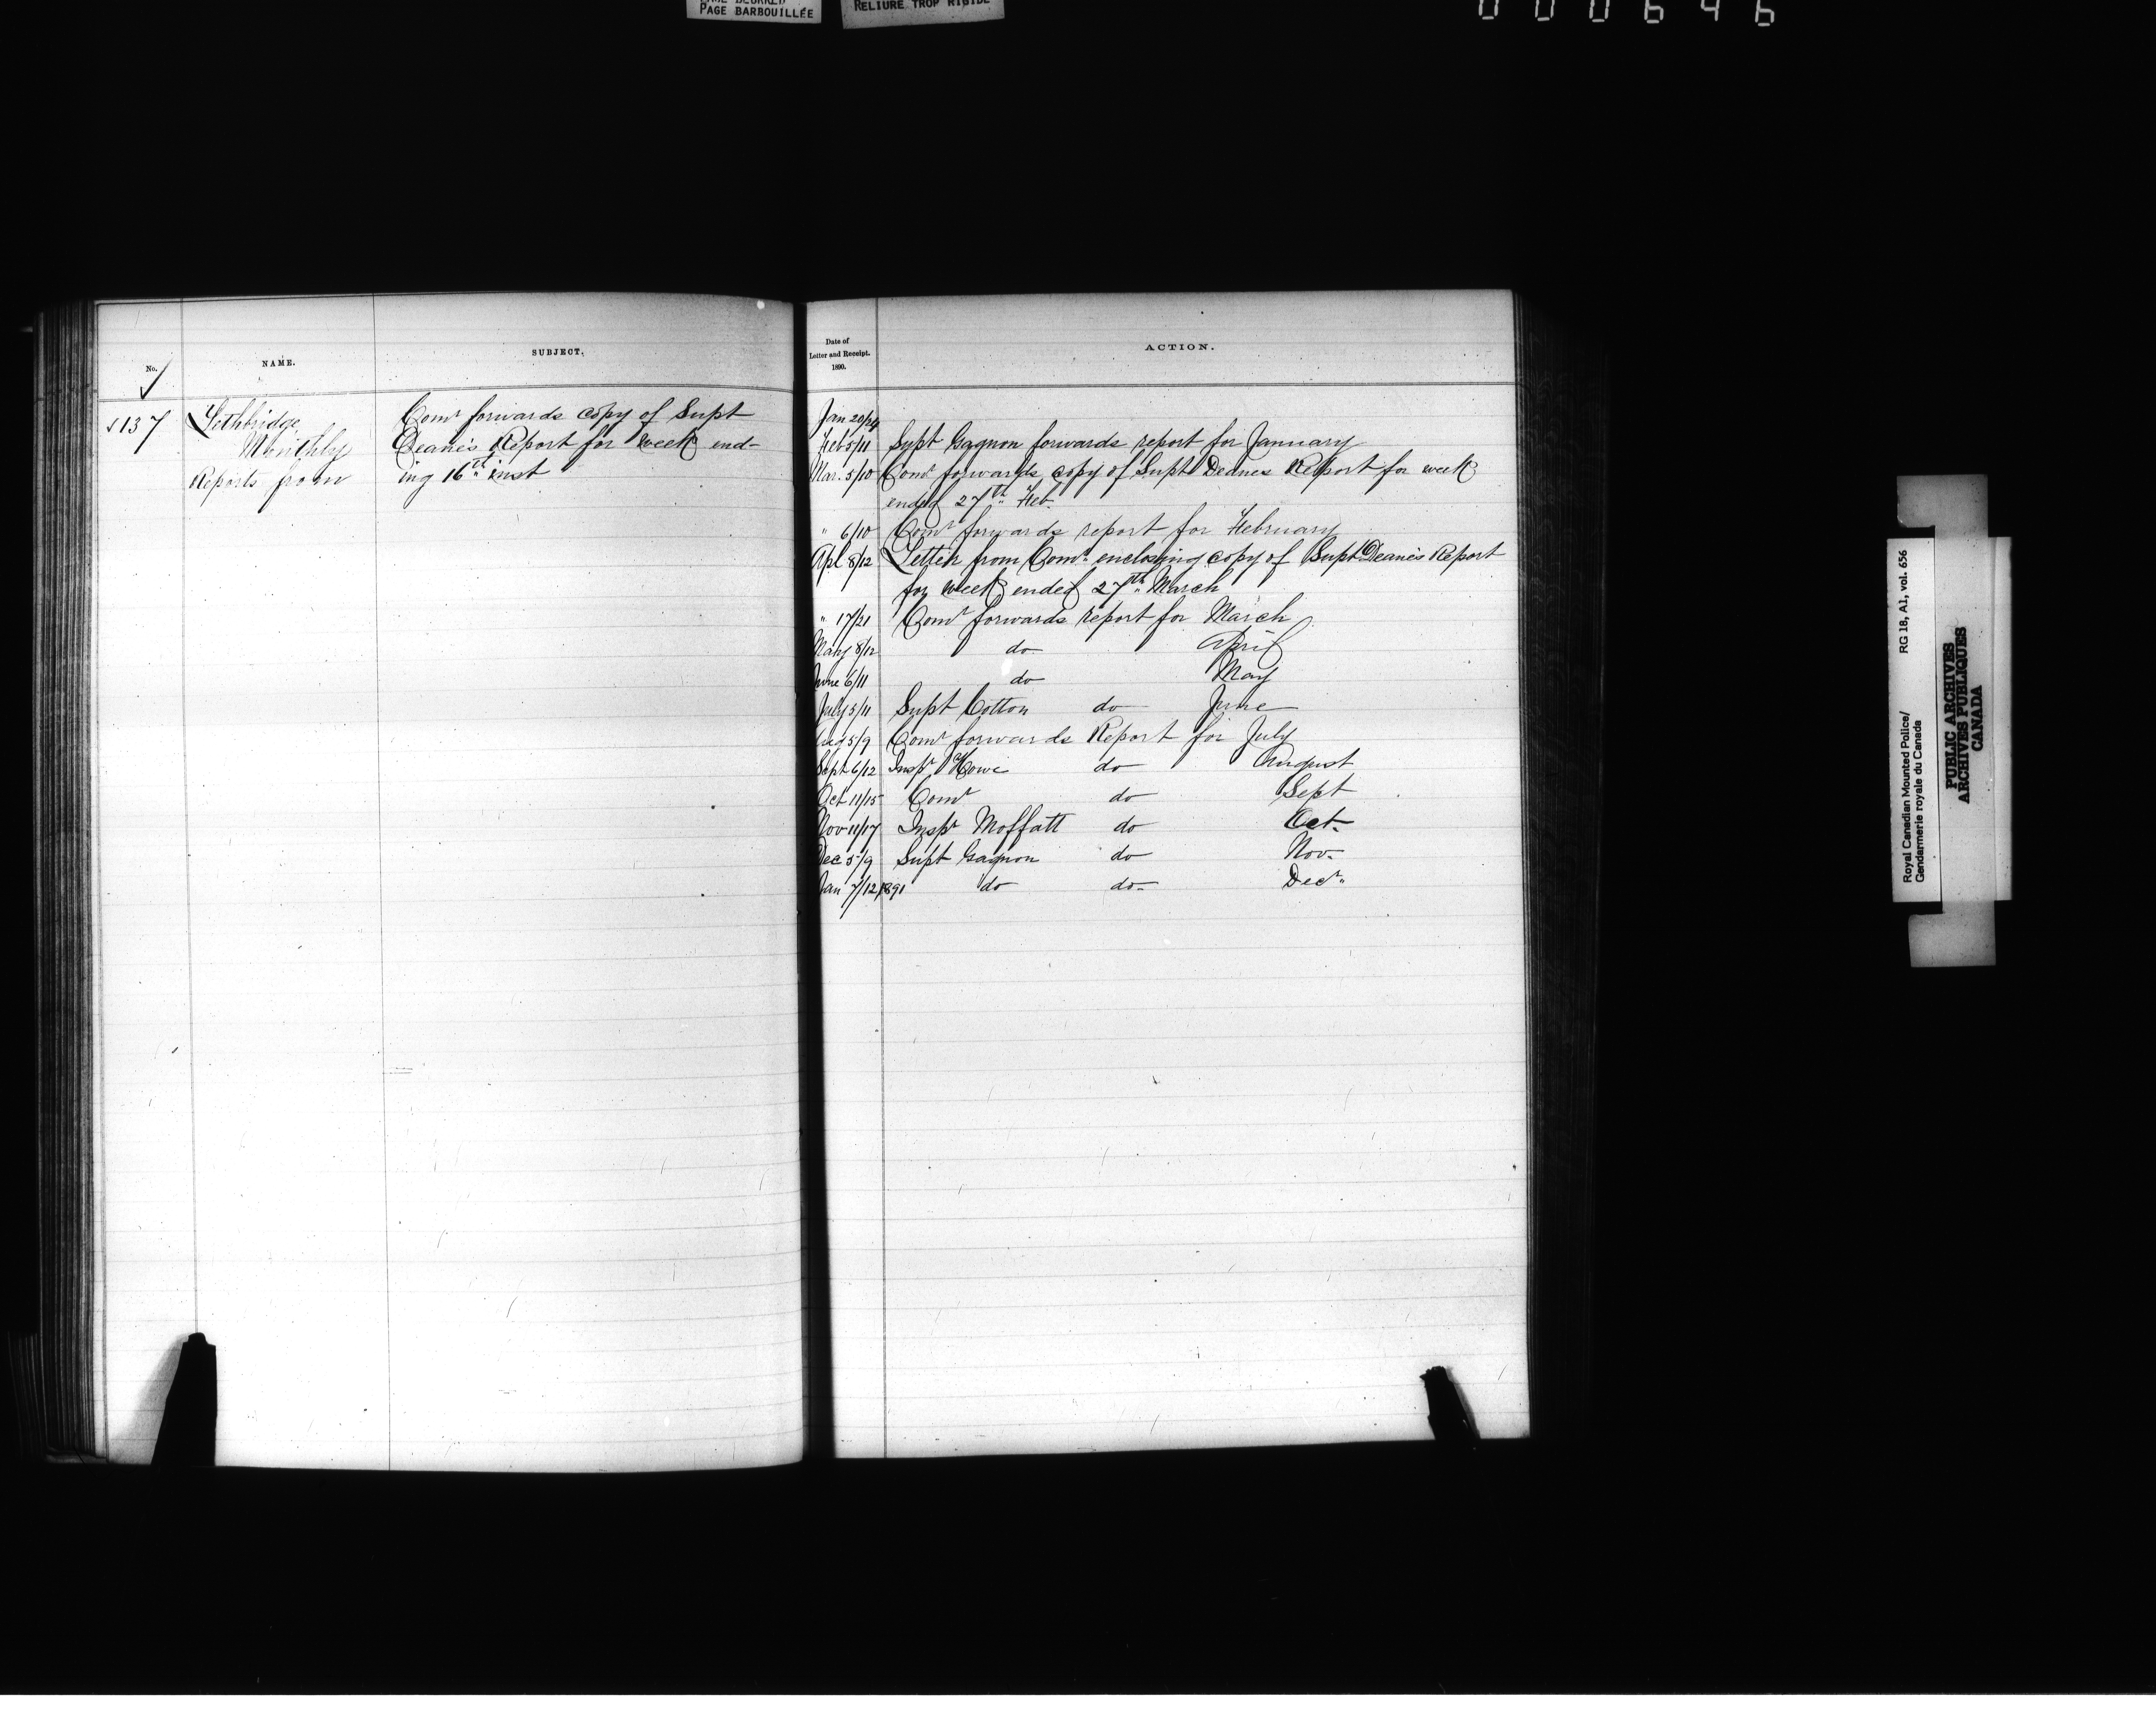 PAGE BARBOUILLÉE
RELIURE TROP RIGIDE
000646
No.
NAME.
SUBJECT.
√ 137
Lethbridge,
Monthly
Reports from
Comr forwards copy of Supt
Deane's Report for week end-
ing 16th inst
Date of
Letter and Receipt.
1890.
ACTION.
Jan 20/24
Feb 5/11 Supt Gagnon forwards report for January
Mar. 5/10 Comr forwards copy of Supt Deanes Report for week
ended 27th Feb.
" 6/10 Comr forwards report for February
Apl 8/12 Letter from Comr. enclosing copy of Supt Deane's Report
for week ended 27th March
" 17/21 Comr forwards report for March
May 8/12 do April
June 6/11 do May
July 5/11 Supt Cotton do June
Aug 5/9 Comr forwards Report for July
Sept 6/12 Inspr Howe do August
Oct 11/15 Comr do Sept
Nov 11/17 Inspr Moffatt do Oct.
Dec 5/9 Supt Gagnon do Nov.
Jan 7/12/1891 do do- Decr.
Royal Canadian Mounted Police/
Gendarmerie royale du Canada
RG 18, A1, vol. 656
PUBLIC ARCHIVES
ARCHIVES PUBLIQUES
CANADA